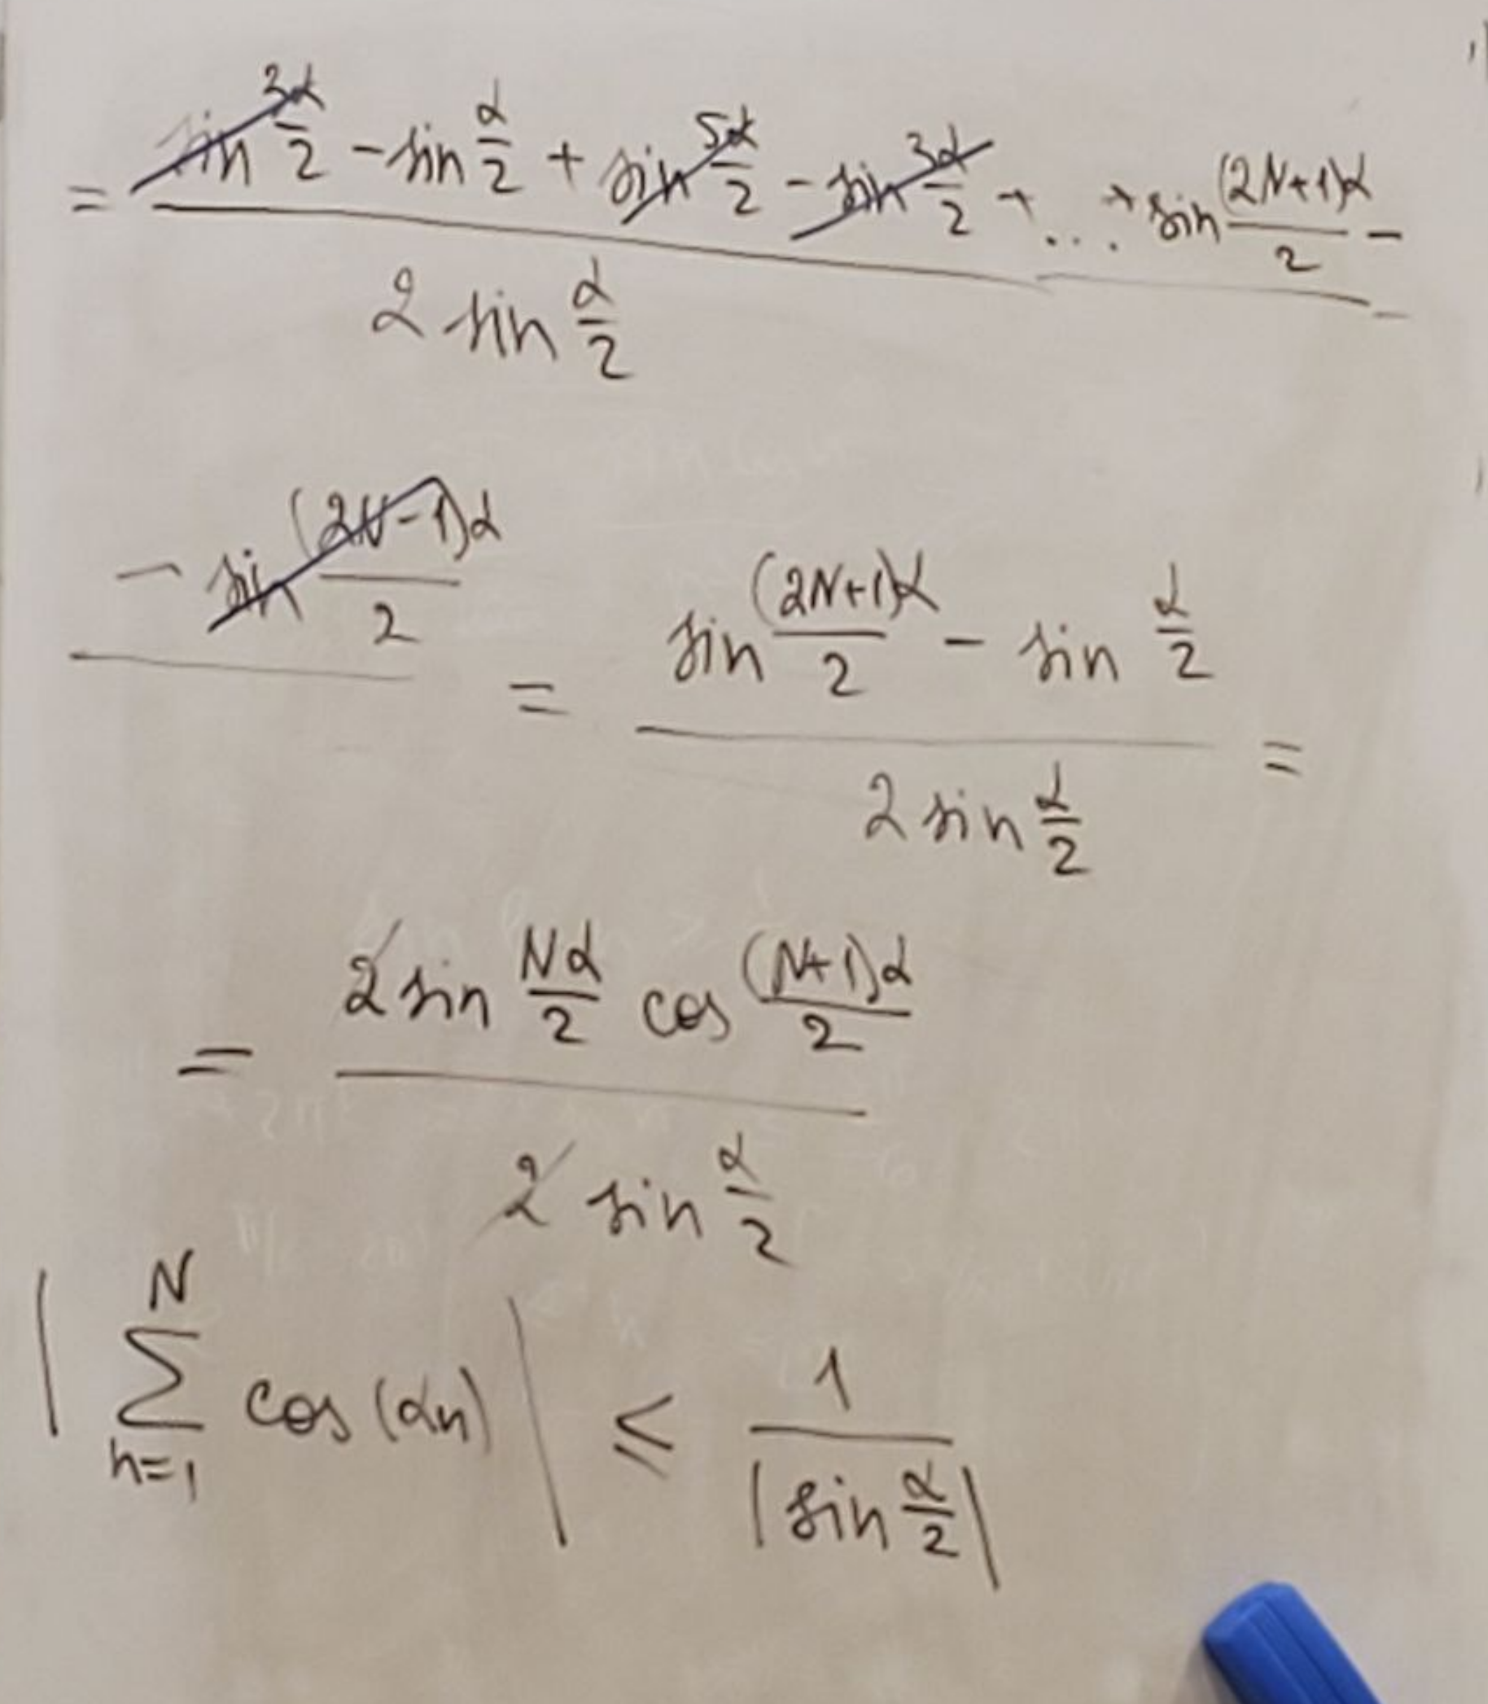 = sin 3α/2 - sin α/2 + sin 5α/2 - sin 3α/2 + ... + sin (2N+1)α/2 -
2 sin α/2
- sin (2N-1)α/2 = (sin (2N+1)α/2 - sin α/2) / (2 sin α/2) =
= (2 sin Nα/2 cos (N+1)α/2) / (2 sin α/2)
| N ∑ n=1 cos(αn) | ≤ 1 / |sin α/2|